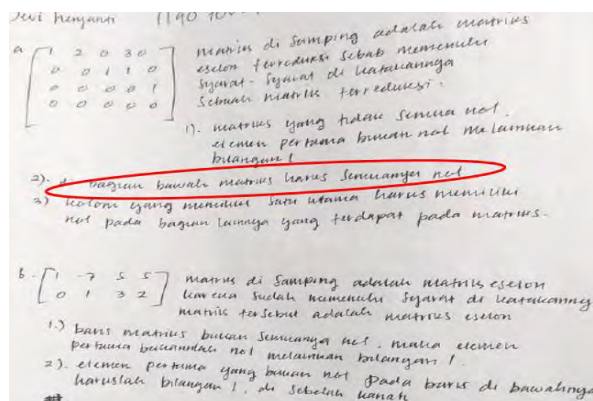 Devi Heryanti 1190 70
a [1 2 0 3 0
0 0 1 1 0
0 0 0 0 1
0 0 0 0 0]
matriks di samping adalah matriks
eselon terreduksi sebab memenuhi
syarat-syarat di katakannya
sebuah matriks terreduksi.
1). matriks yang tidak semua nol.
elemen pertama bukan nol melainkan
bilangan 1
2). di bagian bawah matriks harus semuanya nol
3) kolom yang memiliki satu utama harus memiliki
nol pada bagian lainnya yang terdapat pada matriks.
b. [1 -7 5 5
0 1 3 2]
matriks di samping adalah matriks eselon
karena sudah memenuhi syarat di katakannya
matriks tersebut adalah matriks eselon
1.) baris matriks bukan semuanya nol. maka elemen
pertama bukanlah nol melainkan bilangan 1.
2). elemen pertama yang bukan nol pada baris di bawahnya
haruslah bilangan 1, di sebelah kanan